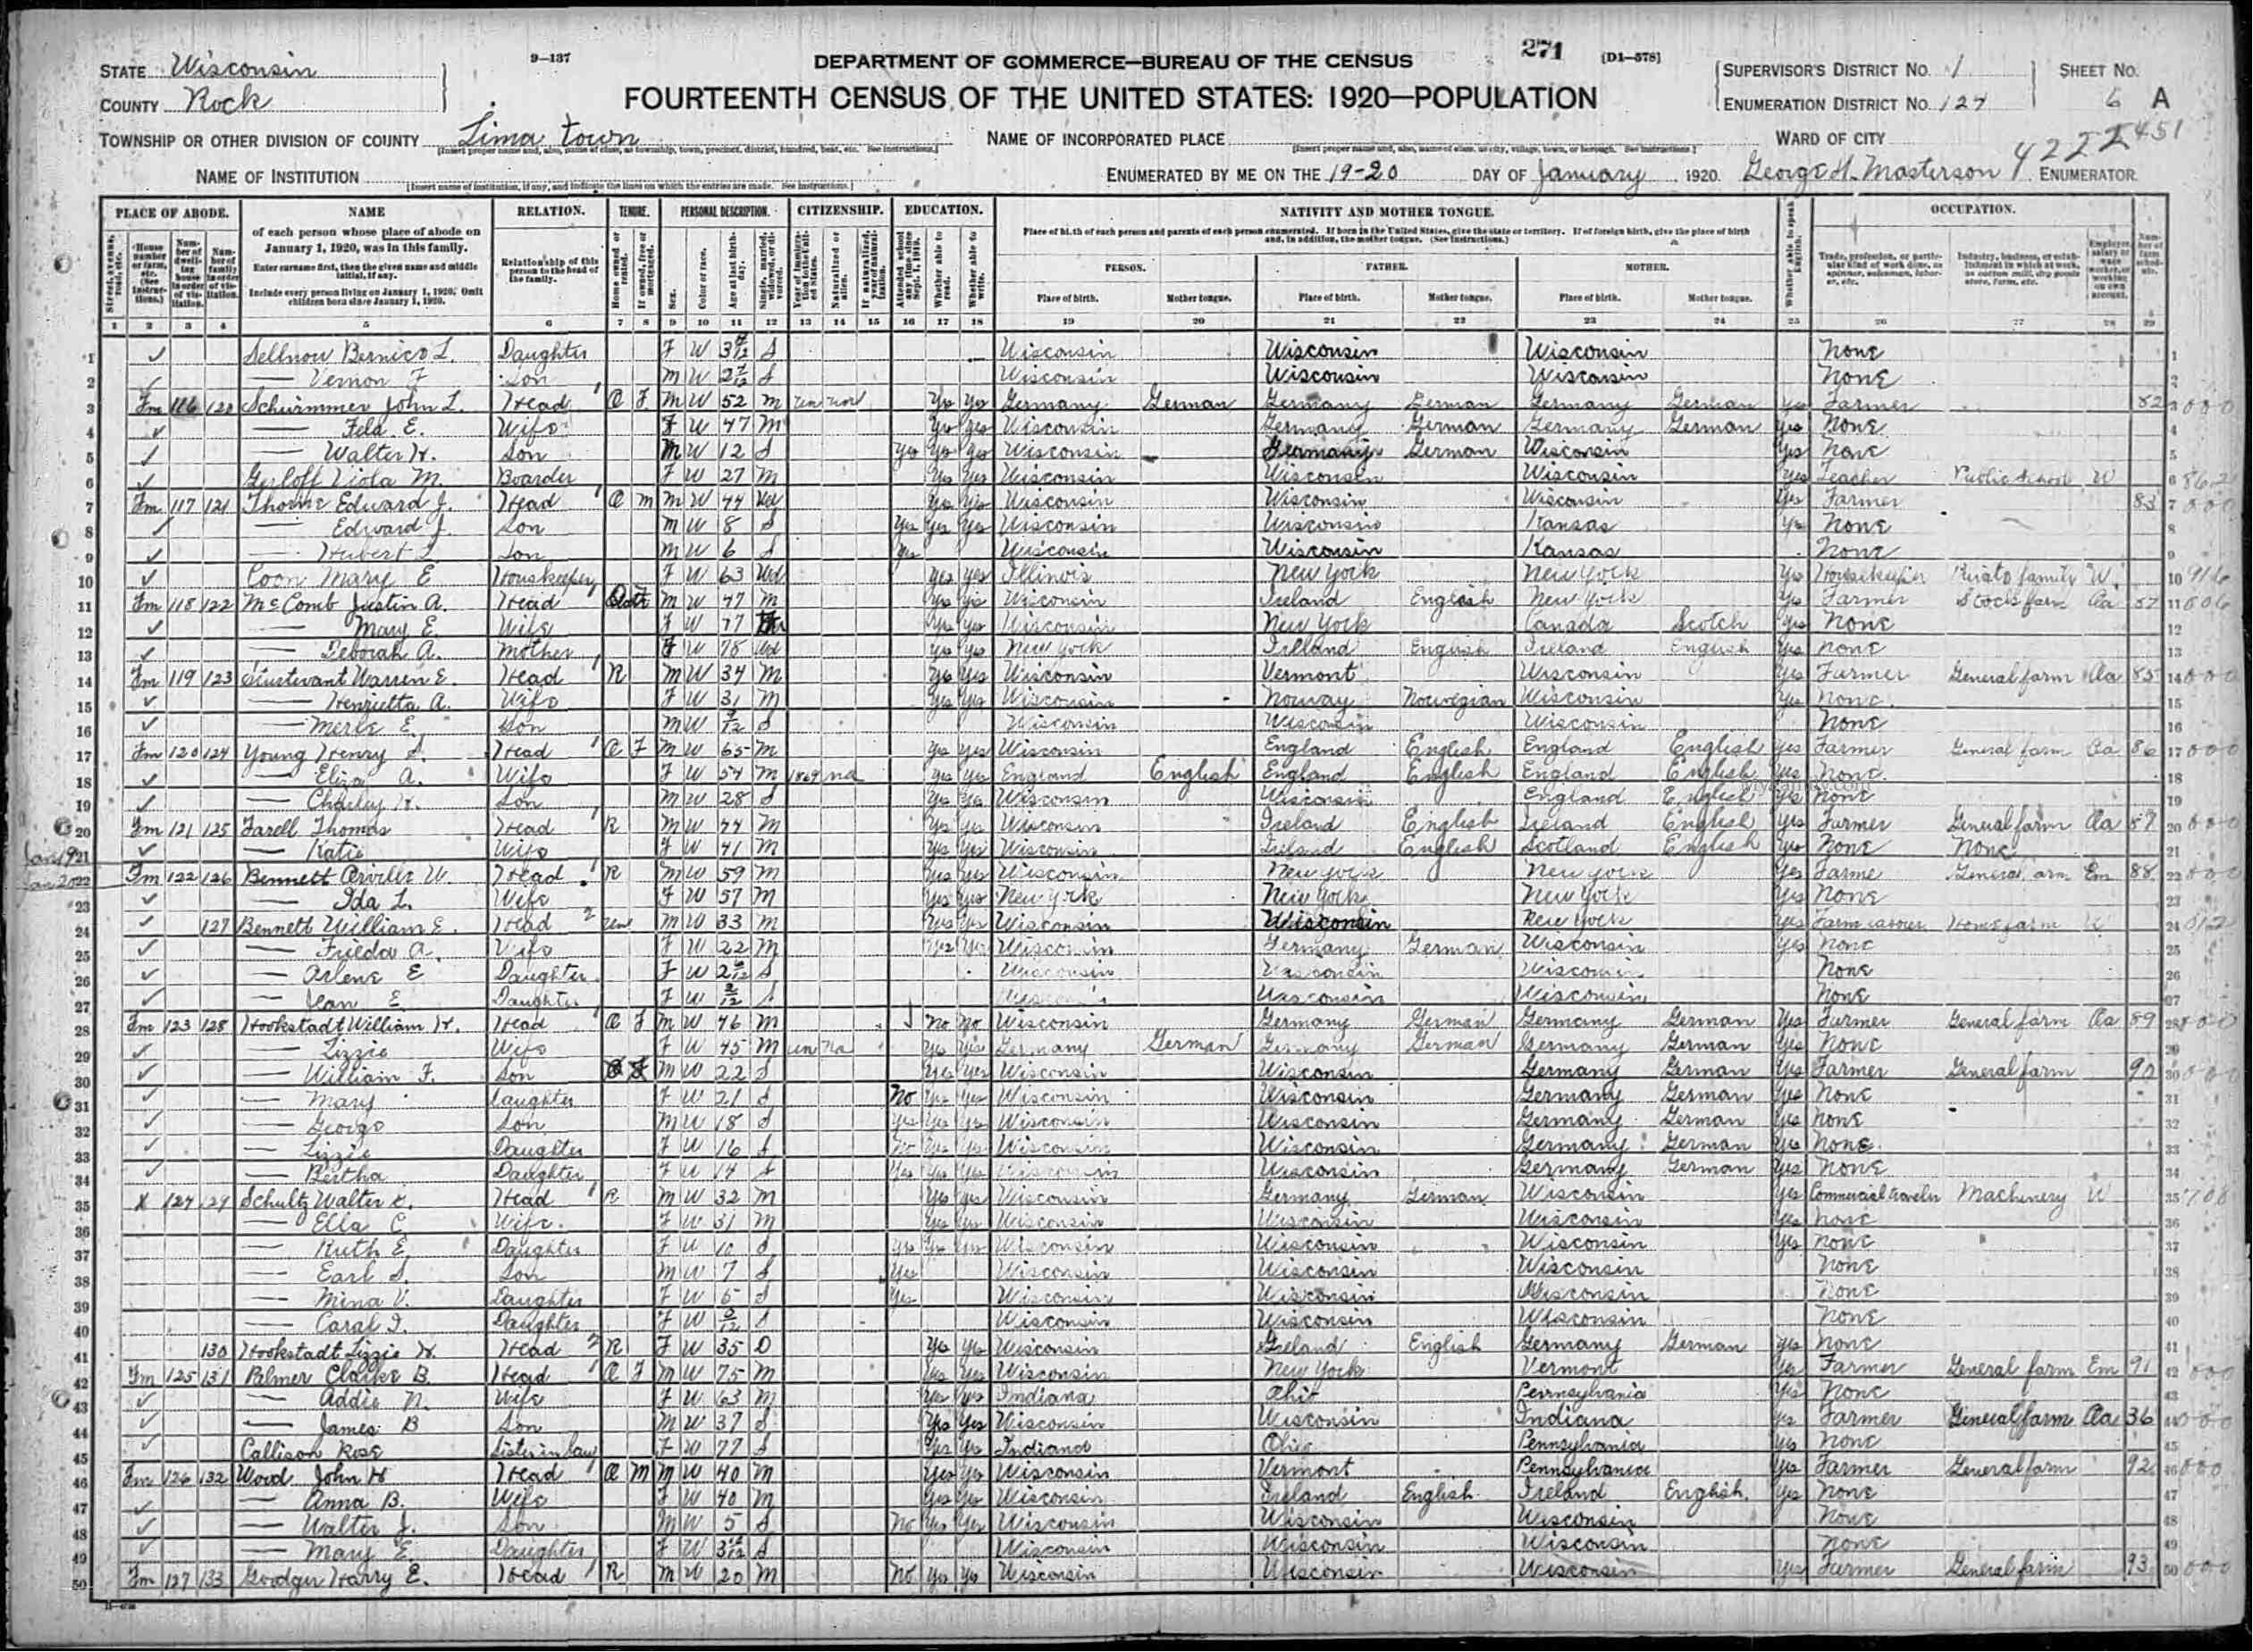 STATE Wisconsin
COUNTY Rock
9—137
DEPARTMENT OF COMMERCE—BUREAU OF THE CENSUS
271
[D1—578]
FOURTEENTH CENSUS OF THE UNITED STATES: 1920—POPULATION
SUPERVISOR'S DISTRICT No. 1
ENUMERATION DISTRICT No. 127
SHEET No.
6 A
TOWNSHIP OR OTHER DIVISION OF COUNTY Lima town
[Insert proper name and, also, name of class, as township, town, precinct, district, hundred, beat, etc. See instructions.]
NAME OF INCORPORATED PLACE
[Insert proper name and, also, name of class, as city, village, town, or borough. See instructions.]
WARD OF CITY
4222 451
NAME OF INSTITUTION
[Insert name of institution, if any, and indicate the lines on which the entries are made. See instructions.]
ENUMERATED BY ME ON THE 19-20 DAY OF January 1920. George H. Masterson ENUMERATOR
PLACE OF ABODE. NAME RELATION. TENURE. PERSONAL DESCRIPTION. CITIZENSHIP. EDUCATION. NATIVITY AND MOTHER TONGUE. OCCUPATION.
of each person whose place of abode on January 1, 1920, was in this family.
Enter surname first, then the given name and middle initial, if any.
Include every person living on January 1, 1920. Omit children born since January 1, 1920.
Relationship of this person to the head of the family.
Place of birth of each person and parents of each person enumerated. If born in the United States, give the state or territory. If of foreign birth, give the place of birth and, in addition, the mother tongue. (See instructions.)
PERSON. FATHER. MOTHER.
Place of birth. Mother tongue. Place of birth. Mother tongue. Place of birth. Mother tongue.
1 2 3 4 5 6 7 8 9 10 11 12 13 14 15 16 17 18 19 20 21 22 23 24 25 26 27 28 29
1 Sellnow Bernice L. Daughter F W S Wisconsin Wisconsin Wisconsin None
2 — Vernon F Son M W S Wisconsin Wisconsin Wisconsin None
3 Fm 116 120 Schwimmer John L. Head O F M W 52 M un un Yes Yes Germany German Germany German Germany German Yes Farmer 82
4 — E. Wife F W 47 M Yes Yes Wisconsin Germany German Germany German Yes None
5 — Walter H. Son M W 12 S Yes Yes Yes Wisconsin Germany German Wisconsin Yes None
6 Gerloff Viola M. Boarder F W 27 M Yes Yes Wisconsin Wisconsin Wisconsin Yes Teacher Public School W
7 Fm 117 121 Thorne Edward J. Head O M M W 44 Wd Yes Yes Wisconsin Wisconsin Wisconsin Yes Farmer 83
8 — Edward J. Son M W 8 S Yes Yes Yes Wisconsin Wisconsin Kansas Yes None
9 — Hubert Son M W 6 S Yes Wisconsin Wisconsin Kansas None
10 Coon Mary E Housekeeper F W 63 Wd Yes Yes Illinois New York New York Yes Housekeeper Private family W
11 Fm 118 122 McComb Justin A. Head M W 47 M Yes Yes Wisconsin Ireland English New York Yes Farmer Stock farm Oa
12 — Mary E. Wife F W Yes Yes Wisconsin New York Canada Scotch Yes None
13 — Deborah A. Mother F W 78 Wd Yes Yes New York Ireland English Ireland English Yes None
14 Fm 119 123 Sturtevant Warren E. Head R M W 34 M Yes Yes Wisconsin Vermont Wisconsin Yes Farmer General farm Oa 85
15 — Henrietta A. Wife F W 31 M Yes Yes Wisconsin Norway Norwegian Wisconsin Yes None
16 — Merle E. Son M W S Wisconsin Wisconsin Wisconsin None
17 Fm 120 124 Young Henry S. Head O F M W 65 M Yes Yes Wisconsin England English England English Yes Farmer General farm Oa 86
18 — Eliza A. Wife F W 54 M 1869 na Yes Yes England English England English England English Yes None
19 — Charley H. Son M W 28 S Yes Yes Wisconsin Wisconsin England English Yes None
20 Fm 121 125 Farell Thomas Head R M W 44 M Yes Yes Wisconsin Ireland English Ireland English Yes Farmer General farm Oa 87
21 — Katie Wife F W 41 M Yes Yes Wisconsin Ireland English Scotland English Yes None None
22 Fm 122 126 Bennett Orville W. Head R M W 59 M Yes Yes Wisconsin New York New York Yes Farmer General farm Em 88
23 — Ida L. Wife F W 57 M Yes Yes New York New York New York Yes None
24 127 Bennett William E. Head M W 33 M Yes Yes Wisconsin Wisconsin New York Yes Farm Laborer Home farm W
25 — Frieda A. Wife F W 22 M Yes Yes Wisconsin Germany German Wisconsin Yes None
26 — Arlene E Daughter F W S Wisconsin Wisconsin Wisconsin None
27 — Jean E Daughter F W S Wisconsin Wisconsin Wisconsin None
28 Fm 123 128 Hookstadt William H. Head O F M W 46 M No No Wisconsin Germany German Germany German Yes Farmer General farm Oa 89
29 — Lizzie Wife F W 45 M un na Yes Yes Germany German Germany German Germany German Yes None
30 — William F. Son M W 22 S Yes Yes Wisconsin Wisconsin Germany German Yes Farmer General farm 90
31 — Mary Daughter F W 21 S No Yes Yes Wisconsin Wisconsin Germany German Yes None
32 — George Son M W 18 S Yes Yes Yes Wisconsin Wisconsin Germany German Yes None
33 — Lizzie Daughter F W 16 S No Yes Yes Wisconsin Wisconsin Germany German Yes None
34 — Bertha Daughter F W 14 S Yes Yes Yes Wisconsin Wisconsin Germany German Yes None
35 X 124 129 Schultz Walter Head R M W 32 M Yes Yes Wisconsin Germany German Wisconsin Yes Commercial traveler Machinery W
36 — Ella C Wife F W 31 M Yes Yes Wisconsin Wisconsin Wisconsin Yes None
37 — Ruth E. Daughter F W 10 S Yes Yes Yes Wisconsin Wisconsin Wisconsin Yes None
38 — Earl S. Son M W 7 S Yes Wisconsin Wisconsin Wisconsin None
39 — Mina V. Daughter F W S Yes Wisconsin Wisconsin Wisconsin None
40 — Caral I. Daughter F W S Wisconsin Wisconsin Wisconsin None
41 130 Hookstadt Lizzie H. Head R F W 35 D Yes Yes Wisconsin Ireland English Germany German Yes None
42 Fm 125 131 Palmer Clarke B. Head O F M W 75 M Yes Yes Wisconsin New York Vermont Yes Farmer General farm Em 91
43 — Addie N. Wife F W 63 M Yes Yes Indiana Ohio Pennsylvania Yes None
44 — James B Son M W 37 S Yes Yes Wisconsin Wisconsin Indiana Yes Farmer General farm Oa 36
45 Callison Rose Sister in law F W 77 S Yes Yes Indiana Ohio Pennsylvania Yes None
46 Fm 126 132 Wood John H Head O M M W 40 M Yes Yes Wisconsin Vermont Pennsylvania Yes Farmer General farm 92
47 — Anna B. Wife F W 40 M Yes Yes Wisconsin Ireland English Ireland English Yes None
48 — Walter J. Son M W 5 S No Yes Yes Wisconsin Wisconsin Wisconsin None
49 — Mary E. Daughter F W S Wisconsin Wisconsin Wisconsin None
50 Fm 127 133 Goodger Harry E. Head R M W 20 M No Yes Yes Wisconsin Wisconsin Wisconsin Yes Farmer General farm 93